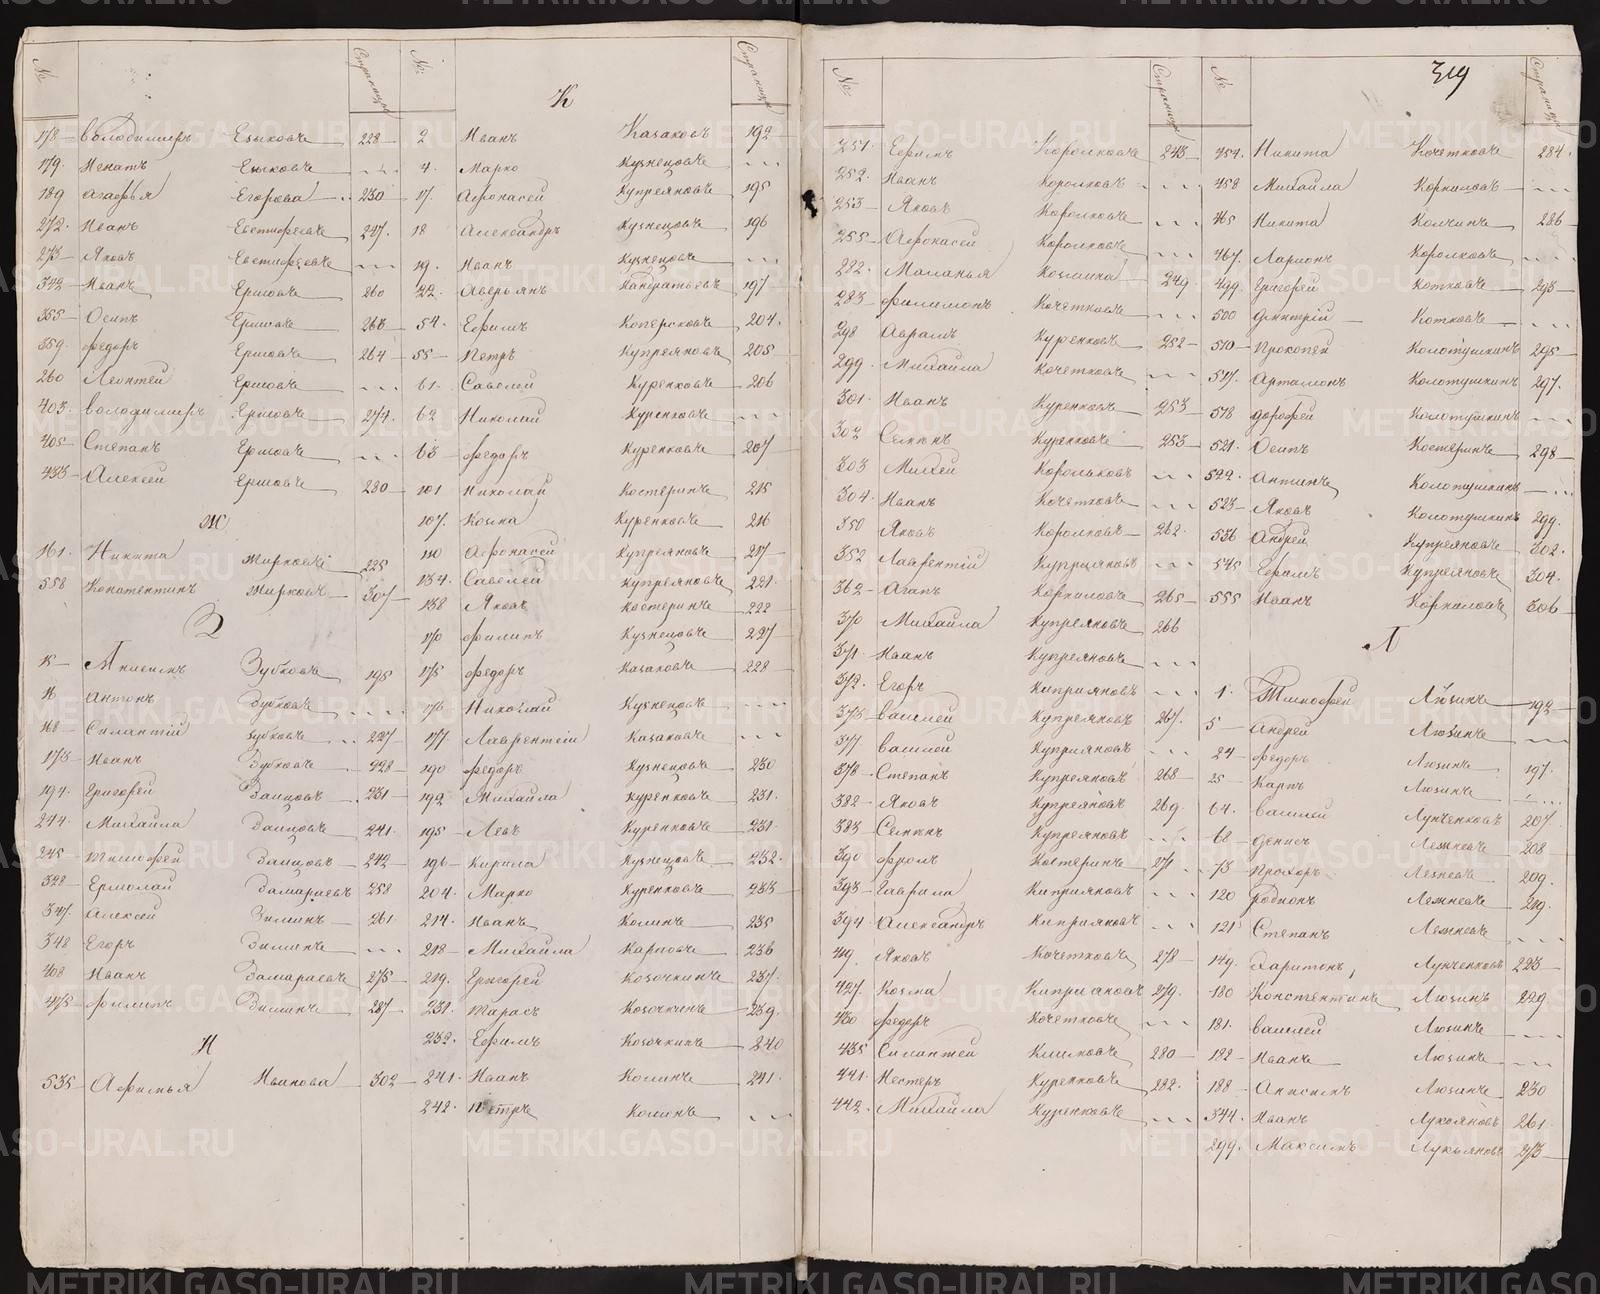 №
Страницы
178 Володимиръ Езыковъ 228
179. Игнатъ Езыковъ
189 Агафья Егорова 230
272. Иванъ Евстифеевъ 247.
273 Яковъ Евстифеевъ
342 Иванъ Ершовъ 260
355 Осипъ Ершовъ 263
359. Федоръ Ершовъ 264
360 Леонтей Ершовъ
403. Володимиръ Ершовъ 274.
405 Степанъ Ершовъ
433 Алексей Ершовъ 280
Ж
161. Никита Жирковъ 225
558 Констентинъ Жирковъ 307
З
15 Анисимъ Зубковъ 195
16 Антонъ Зубковъ
168 Силантій Зубковъ 227
173 Иванъ Зубковъ 228
194. Григорей Заицовъ 231
244. Михайла Заицовъ 241.
245 Тимофей Заицовъ 242
328 Ермолай Замараевъ 258
347. Алексей Зиминъ 261
348 Егоръ Зиминъ
408 Иванъ Замараевъ 275
475 Филипъ Зиминъ 287
И
535 Афимья Иванова 302
№
Страницы
К
2 Иванъ Казаковъ 192
4. Марко Кузнецовъ
17. Афонасей Купреяновъ 195
18 Александръ Кузнецовъ 196
19. Иванъ Кузнецовъ
22. Аверьянъ Кандратьевъ 197
54. Ефимъ Коперсковъ 204.
55 Петръ Купреяновъ 205
61. Савелей Куренковъ 206
62 Николай Куренковъ
63 Федоръ Куренковъ 207
101 Николай Костеринъ 215
107. Козма Куренковъ 216
110 Афонасей Купреяновъ 217
134. Савелей Купреяновъ 221.
138 Яковъ Костеринъ 222
170 Филипъ Кузнецовъ 227
175 Федоръ Казаковъ 228
176 Николай Кузнецовъ
177. Лаврентей Казаковъ
190 Федоръ Кузнецовъ 230
192 Михайла Куренковъ 231.
195 Левъ Куренковъ 231.
196 Кирила Кузнецовъ 232.
204. Марко Куренковъ 233
214. Иванъ Колинъ 235
218 Михайла Карповъ 236
219. Григорей Козочкинъ 237.
231. Тарасъ Козочкинъ 239.
232. Ефимъ Козочкинъ 240
241. Иванъ Колинъ 241.
242. Петръ Колинъ
№
Страницы
251. Ефимъ Королковъ 243
252. Иванъ Королковъ
253 Яковъ Королковъ
255 Афонасей Королковъ
282. Маланья Козмина 249
283 Филимонъ Кочетковъ
298 Аврамъ Куренковъ 252
299. Михайла Кочетковъ
301. Иванъ Куренковъ 253
302 Семенъ Куренковъ 253
303 Михей Корольковъ
304. Иванъ Кочетковъ
350 Яковъ Королковъ 262.
352 Лаврентій Куприяновъ
362 Агапъ Корниловъ 265
370 Михайла Купреяновъ 266
371. Иванъ Купреяновъ
372. Егоръ Киприяновъ
375 Василей Купреяновъ 267.
377 Василей Куприяновъ
378 Степанъ Купреяновъ 268
382 Яковъ Купреяновъ 269.
383 Семенъ Купреяновъ
390 Фролъ Костеринъ 271.
393 Гаврила Киприяновъ
394 Александръ Киприяновъ
419. Яковъ Кочетковъ 278
427. Козма Киприяновъ 279.
430 Федоръ Кочетковъ
435 Силантей Климовъ 280
441. Нестеръ Куренковъ 282.
442. Михайла Куренковъ
№
319
Страницы
454. Никита Кочетковъ 284.
458 Михайла Корниловъ
465 Никита Колчинъ 286
467. Ларионъ Королковъ
499. Григорей Котковъ 293
500 Дмитрій Котковъ
510 Прокопей Колотушкинъ 295
517. Артамонъ Колотушкинъ 297.
518 Дорофей Колотушкинъ
521. Осипъ Костеринъ 298
522. Антипъ Колотушкинъ
523 Яковъ Колотушкинъ 299.
536 Андрей Купреяновъ 302.
545 Ефимъ Купреяновъ 304.
555 Иванъ Корниловъ 306
Л
1. Тимофей Люзинъ 192
5 Андрей Люзинъ
24 Федоръ Люзинъ 197.
25 Карпъ Люзинъ
64. Василей Лунченковъ 207.
68 Денисъ Лезневъ 208
73 Прохоръ Лезневъ 209.
120 Родионъ Лезневъ 219.
121 Степанъ Лезневъ
149. Харитонъ Лунченковъ 223
180 Констентинъ Люзинъ 229
181. Василей Люзинъ
182 Иванъ Люзинъ
188 Анисимъ Люзинъ 230
344. Иванъ Лукояновъ 261.
299. Максимъ Лукьяновъ 273